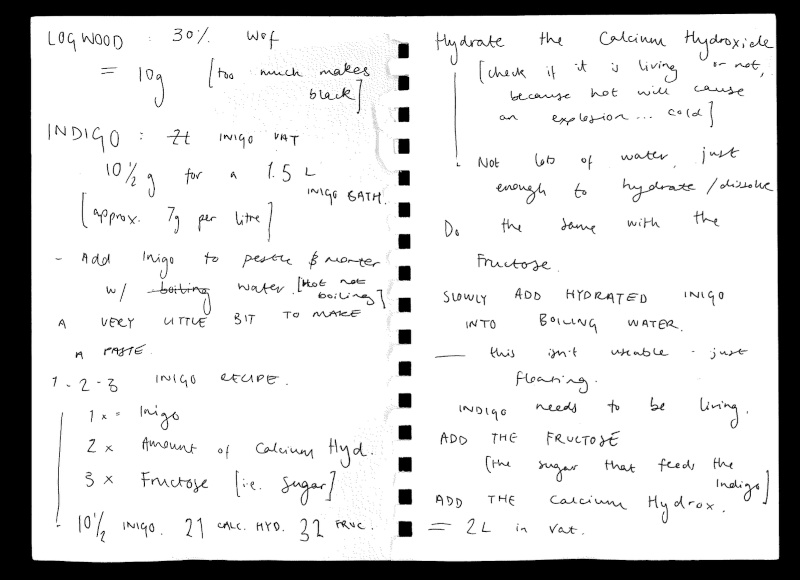 LOGWOOD : 30% wof
= 10g [too much makes
black]
INDIGO : 2L INIGO VAT
10½ g for a 1.5 L
INIGO BATH.
[approx. 7g per litre]
- Add Inigo to pestle & morter
w/ boiling water. [Hot not
boiling]
A VERY LITTLE BIT TO MAKE
A PASTE.
1-2-3 INIGO RECIPE.
1 x = Inigo
2 x Amount of Calcium Hyd.
3 x Fructose [i.e. Sugar]
10½ INIGO. 21 CALC. HYD. 32 FRUC.
Hydrate the Calcium Hydroxide
[check if it is living or not,
because hot will cause
an explosion... cold]
Not lots of water, just
enough to hydrate/dissolve
Do the same with the
Fructose.
SLOWLY ADD HYDRATED INIGO
INTO BOILING WATER.
— this isn't useable - just
floating.
INDIGO needs to be living.
ADD THE FRUCTOSE
[the sugar that feeds the
Indigo]
ADD THE Calcium Hydrox.
= 2L in vat.